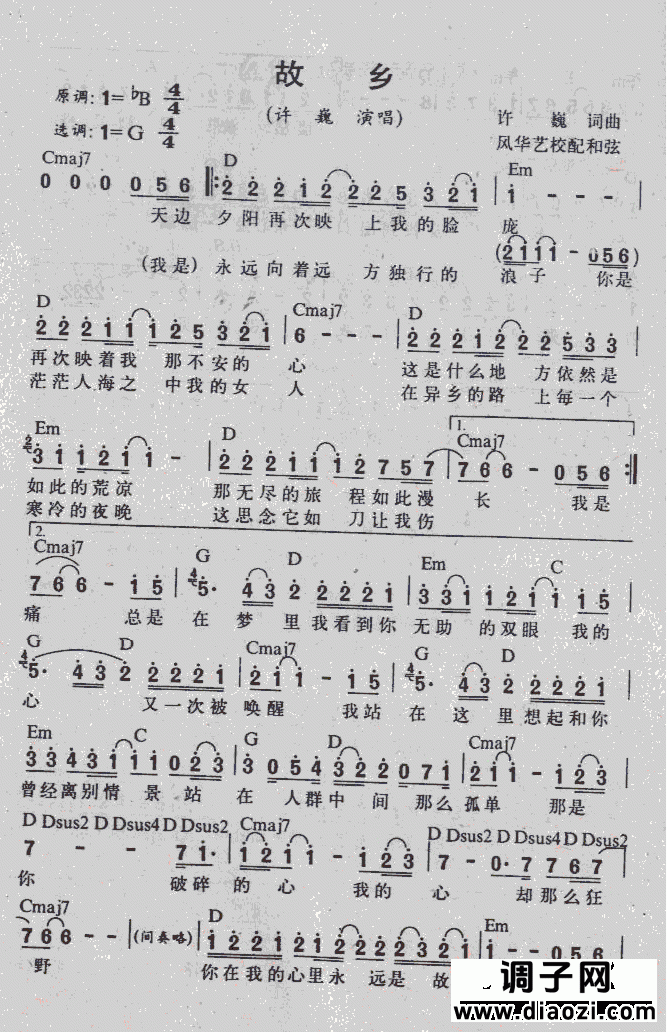 故 乡
原调:1=♭B 4/4
(许 巍 演唱)
许 巍 词曲
选调:1=G 4/4
风华艺校配和弦
Cmaj7 D Em
0 0 0 0 5 6 2 2 2 1 2 2 2 5 3 2 1 1 - - -
天边 夕阳再次映 上我的脸 庞
(2 1 1 1 - 0 5 6)
(我是) 永远向着远 方独行的 浪子 你是
D Cmaj7 D
2 2 2 1 1 1 2 5 3 2 1 6 - - - 2 2 2 1 2 2 2 5 3 3
再次映着我 那不安的 心 这是什么地 方依然是
茫茫人海之 中我的女 人 在异乡的路 上每一个
1.
Em D Cmaj7
3 1 1 2 1 1 - 2 2 2 1 1 1 2 7 5 7 7 6 6 - 0 5 6
如此的荒凉 那无尽的旅 程如此漫 长 我是
寒冷的夜晚 这思念它如 刀让我伤
2.
Cmaj7 G D Em C
7 6 6 - 1 5 5· 4 3 2 2 2 2 1 3 3 1 1 2 1 1 1 5
痛 总是 在 梦 里我看到你 无助 的双眼 我的
G D Cmaj7 G D
5· 4 3 2 2 2 2 1 2 1 1 - 1 5 5· 4 3 2 2 2 2 1
心 又一次被 唤醒 我站 在 这 里想起和你
Em C G D Cmaj7
3 3 4 3 1 1 1 0 2 3 3 0 5 4 3 2 2 0 7 1 2 1 1 - 1 2 3
曾经离别情 景站 在 人群中 间 那么孤单 那是
D Dsus2 D Dsus4 D Dsus2 Cmaj7 D Dsus2 D Dsus4 D Dsus2
7 - - 7 1· 1 2 1 1 - 1 2 3 7 - 0· 7 7 6 7
你 破碎 的 心 我的 心 却那么狂
Cmaj7 D Em
7 6 6 - - (间奏略) 1 2 2 1 2 1 2 2 2 2 3 2 1 1 - -
野 你在我的心里永 远是 故
调子网
www.diaozi.com